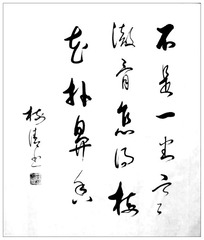 不是一番寒
澈骨怎得梅
花扑鼻香